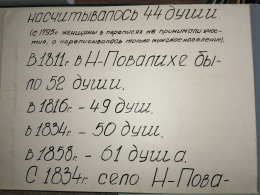 насчитывалось 44 души.
(с 1795г. женщины в переписях не принимали учас-
тия, а переписывалось только мужское население).
В 1811г. в Н-Повалихе бы-
ло 52 души.
в 1816г. - 49 душ.
в 1834г. - 50 душ.
в 1858г. - 61 душа.
С 1834г. село Н-Пова-